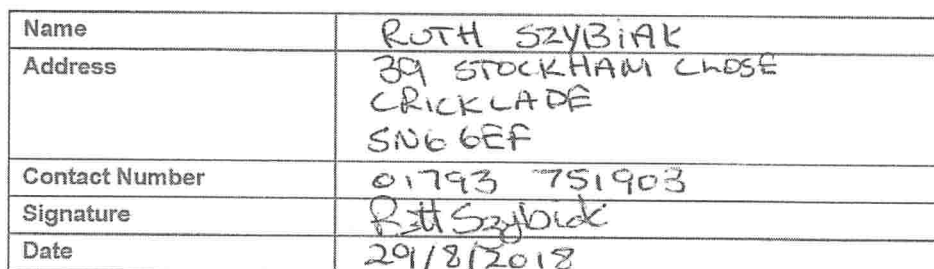 Name RUTH SZYBiAK
Address 39 STOCKHAM CLOSE
CRICKLADE
SN6 6EF
Contact Number 01793 751903
Signature Ruth Szybiak
Date 29/8/2018